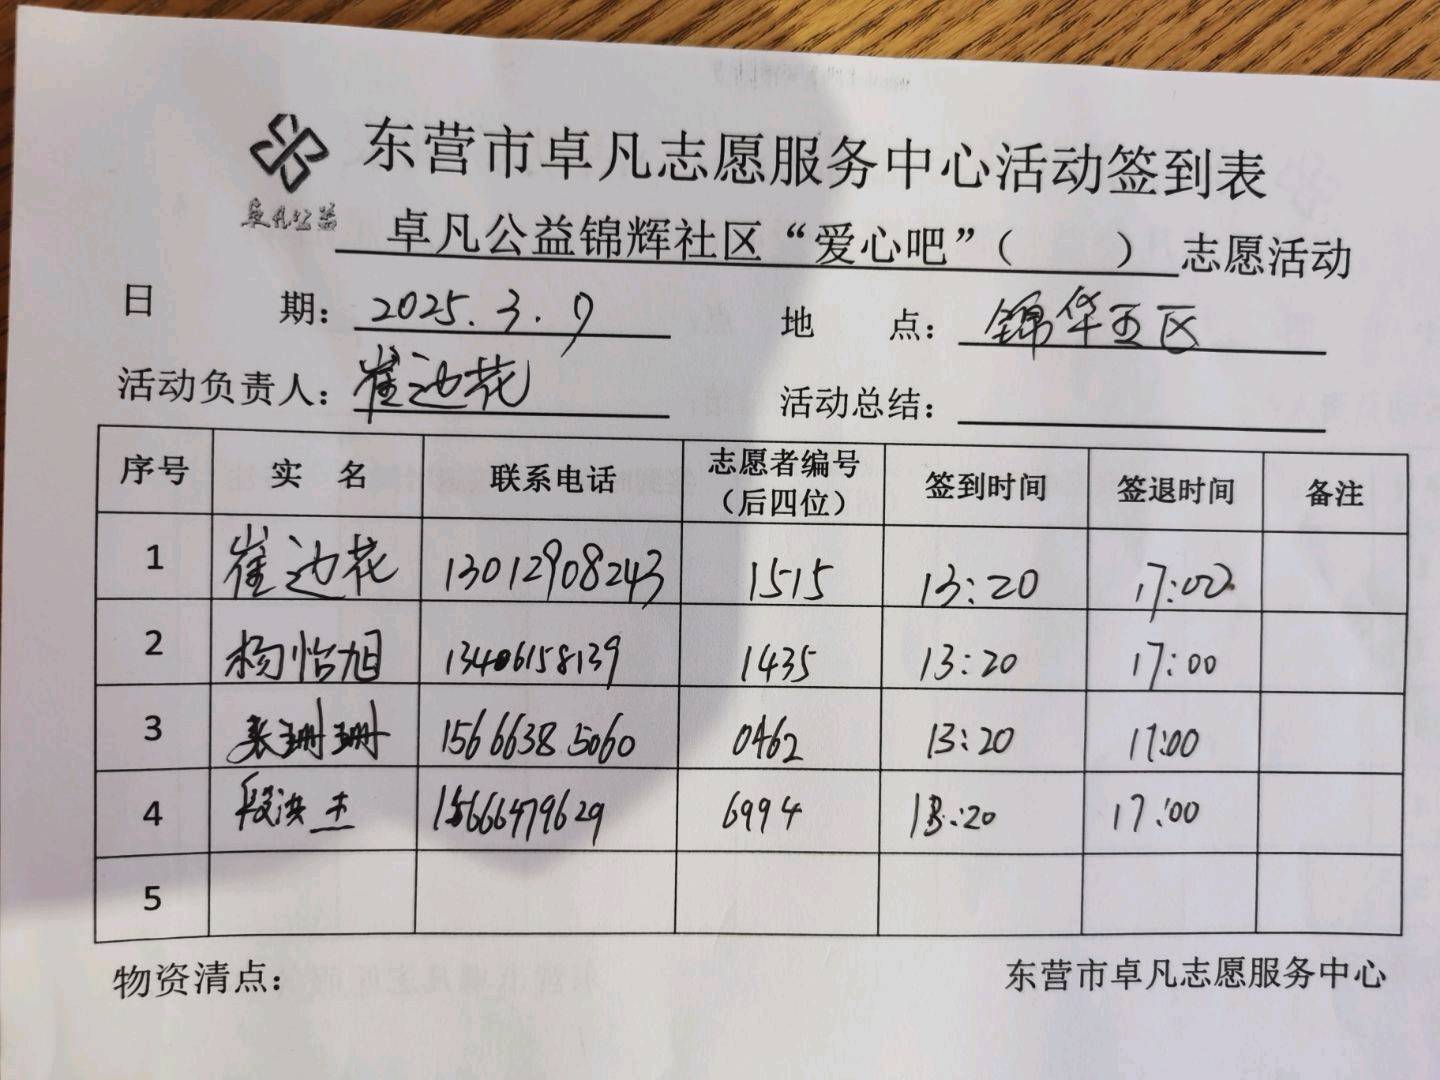 东营市卓凡志愿服务中心活动签到表
卓凡公益
卓凡公益锦辉社区“爱心吧”（ ）志愿活动
日 期： 2025.3.9 地 点： 锦华五区
活动负责人： 崔边花 活动总结：
序号 实 名 联系电话 志愿者编号（后四位） 签到时间 签退时间 备注
1 崔边花 13012908243 1515 13:20 17:00
2 杨怡旭 13406158139 1435 13:20 17:00
3 张珊珊 15666385060 0462 13:20 17:00
4 段洪杰 15666479629 6994 13:20 17:00
5
物资清点： 东营市卓凡志愿服务中心